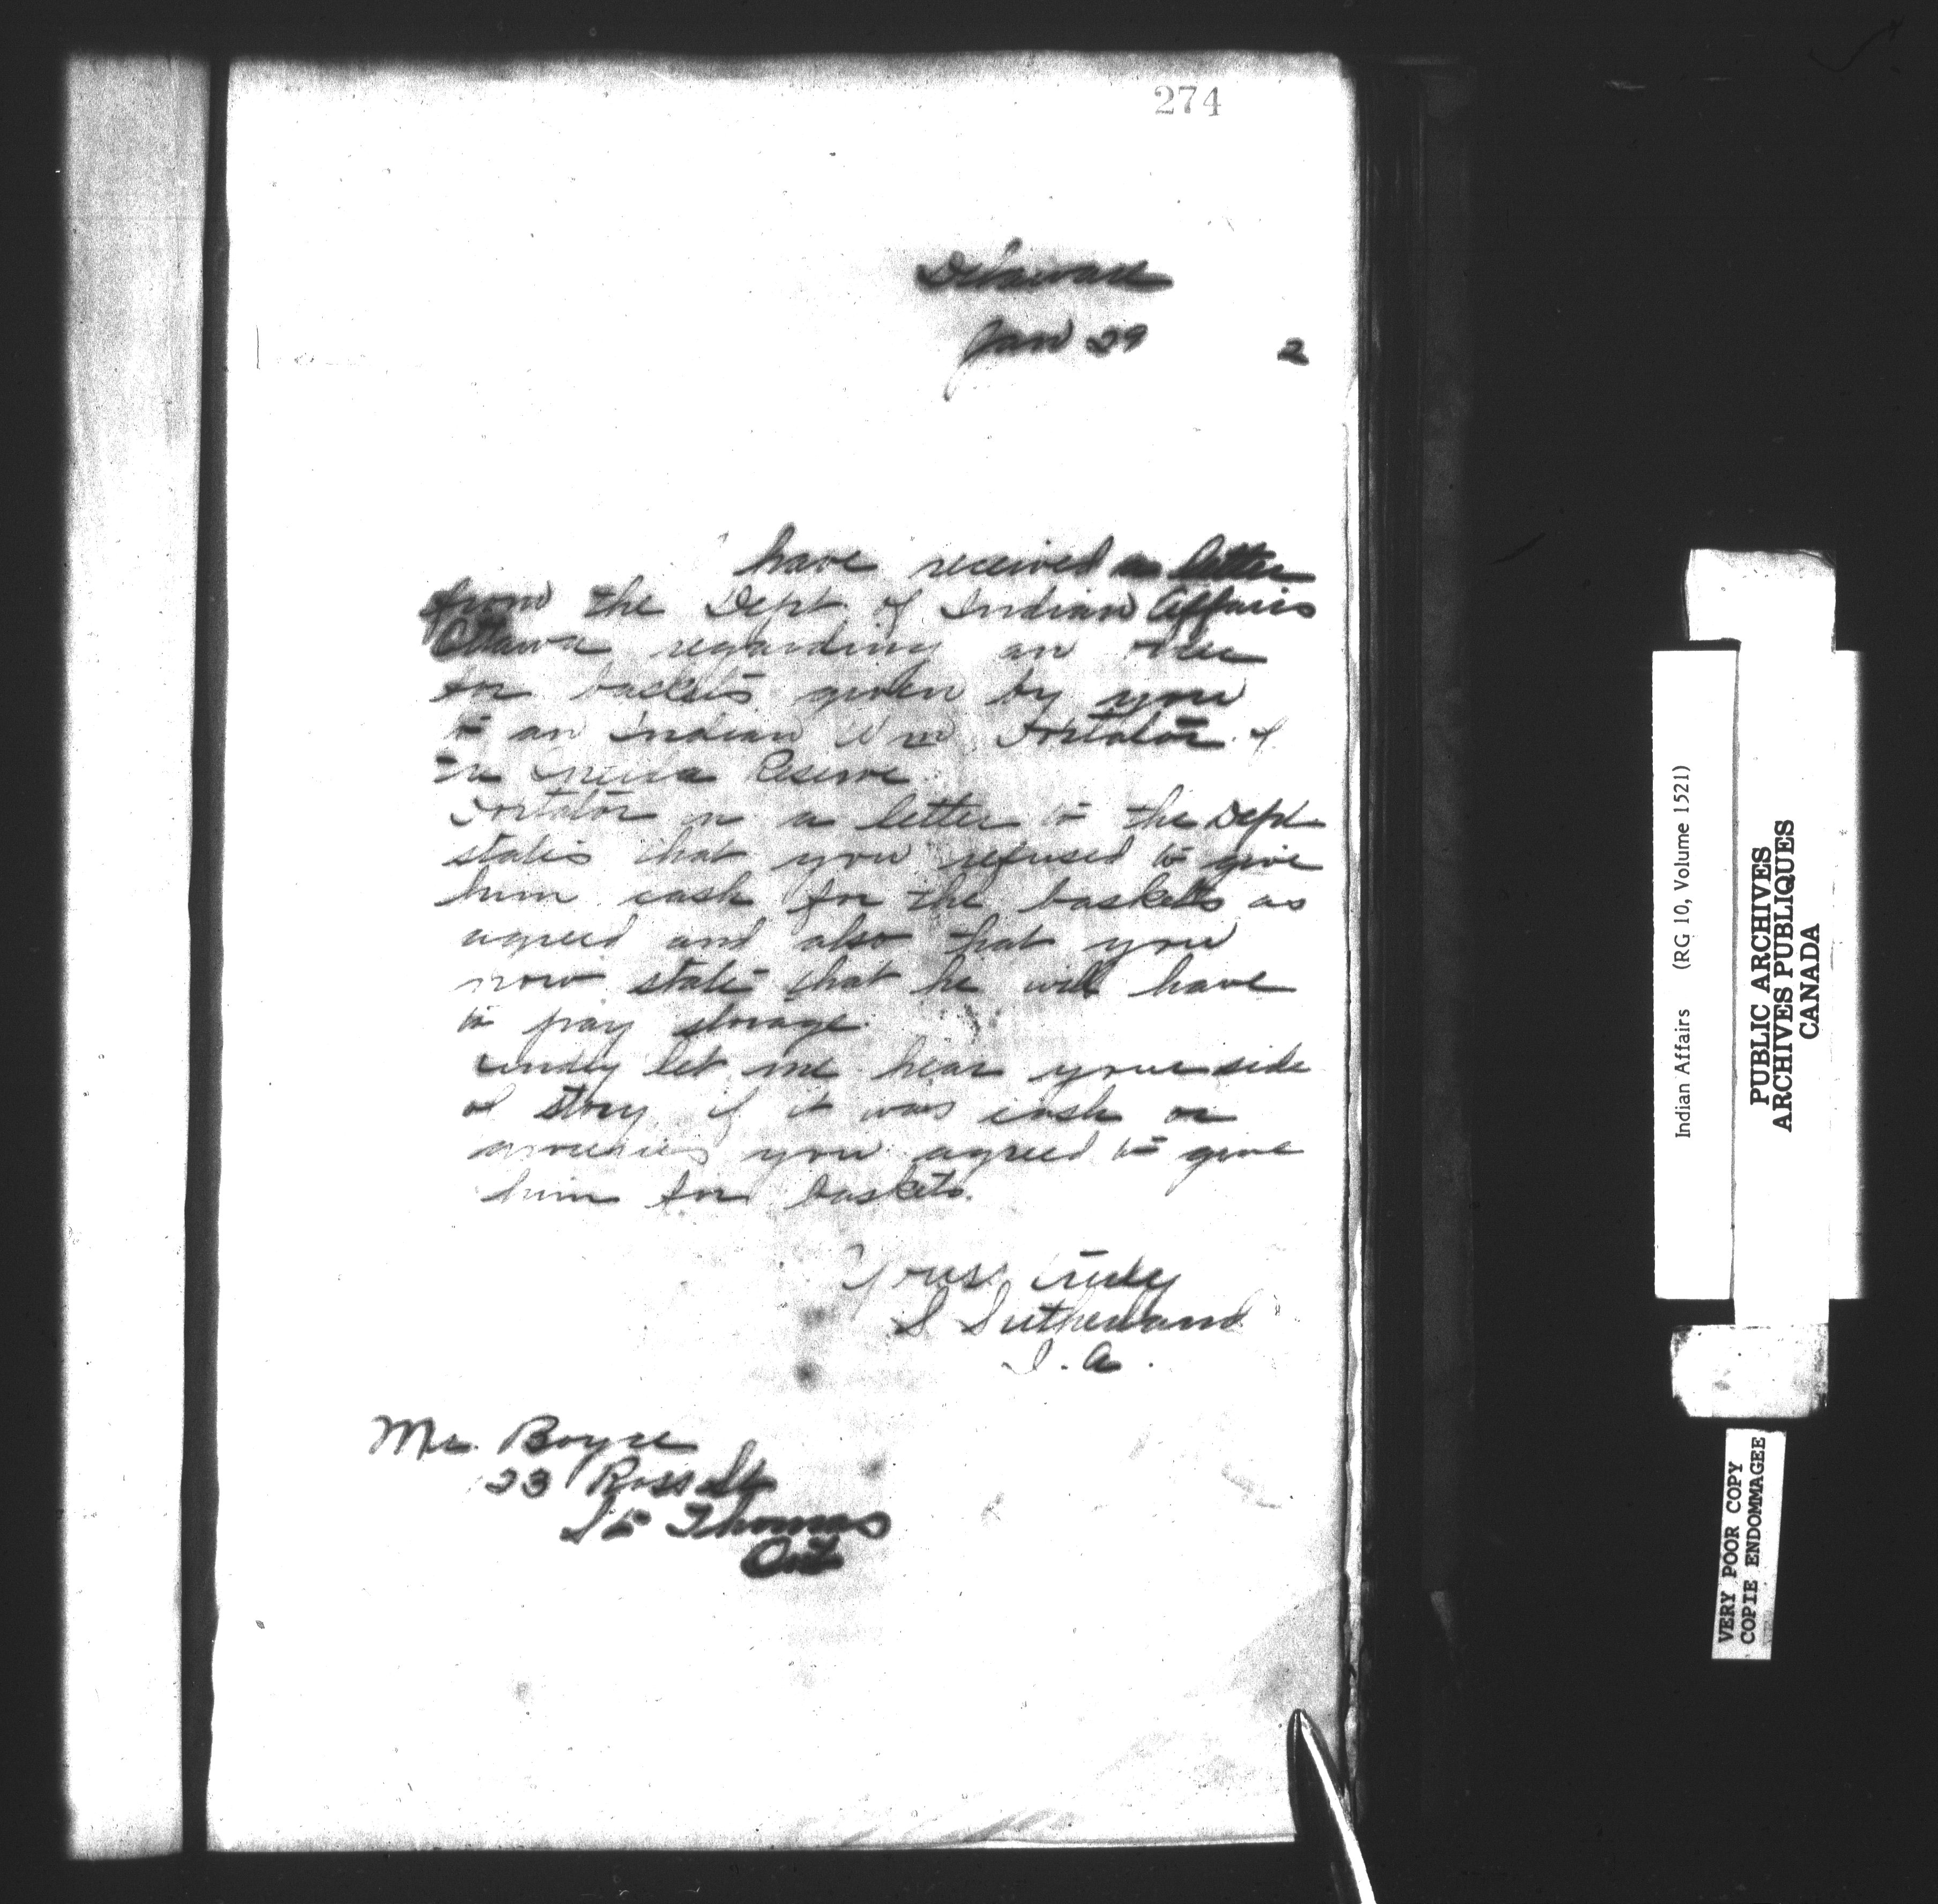 274
Delaware
Jan 29 2
have received a letter
from the Dept of Indian Affairs
Ottawa regarding an order
for baskets given by you
to an Indian Wm of
the Oneida Reserve.
in a letter to the Dept
states that you refused to give
him cash for the basketts as
agreed and also that you
now state that he will have
to pay storage.
Kindly let me hear your side
of story if it was cash or
groceries you agreed to give
him for baskets.
Yours truly
S Sutherland
I. A.
Mr. Boyce
23 Ross St
St Thomas
Ont
Indian Affairs (RG 10, Volume 1521)
PUBLIC ARCHIVES
ARCHIVES PUBLIQUES
CANADA
VERY POOR COPY
COPIE ENDOMMAGEE